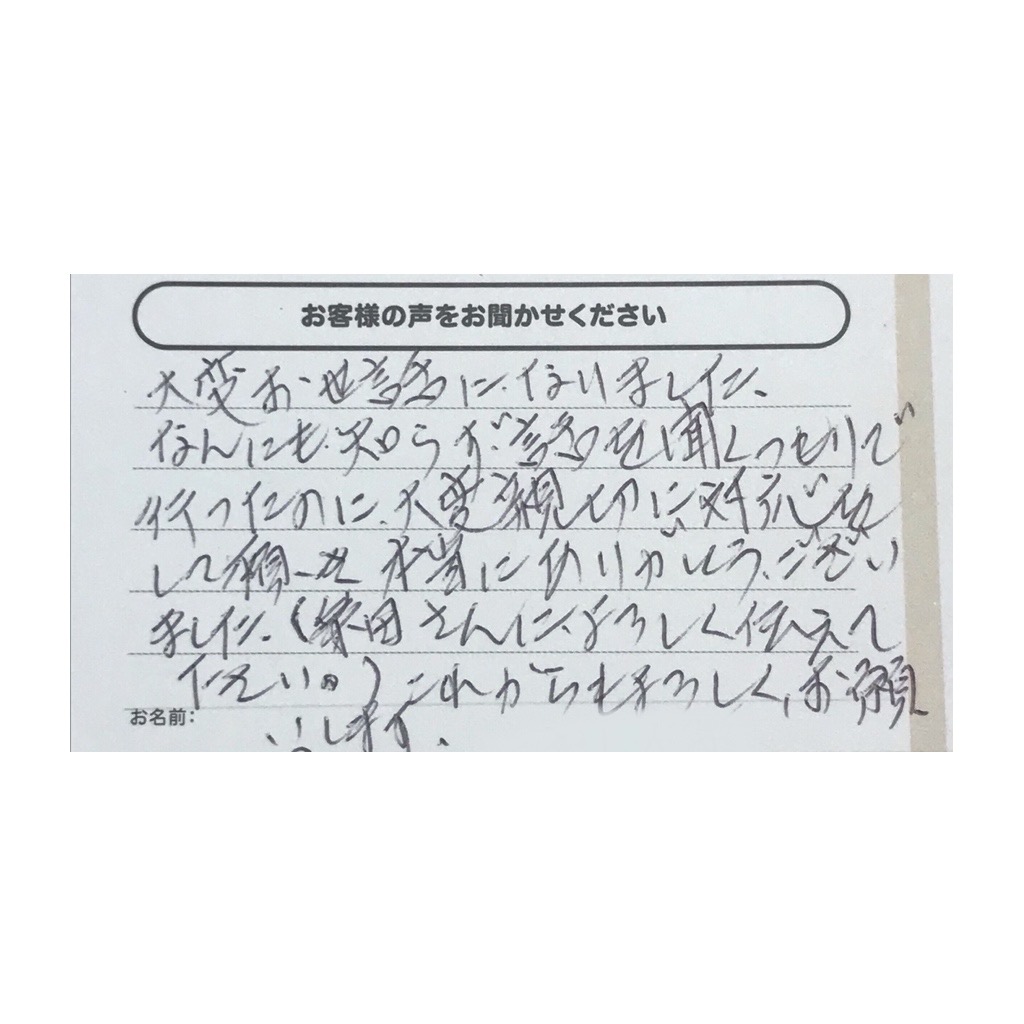 お客様の声をお聞かせください
大変お世話になりました、
なんにも知らず話を聞くつもりで
行ったのに、大変親切に対応
して頂き本当にありがとうございい
ました、(さんに、よろしく伝えて
下さい)これからもよろしく、お願
お名前:
いします、